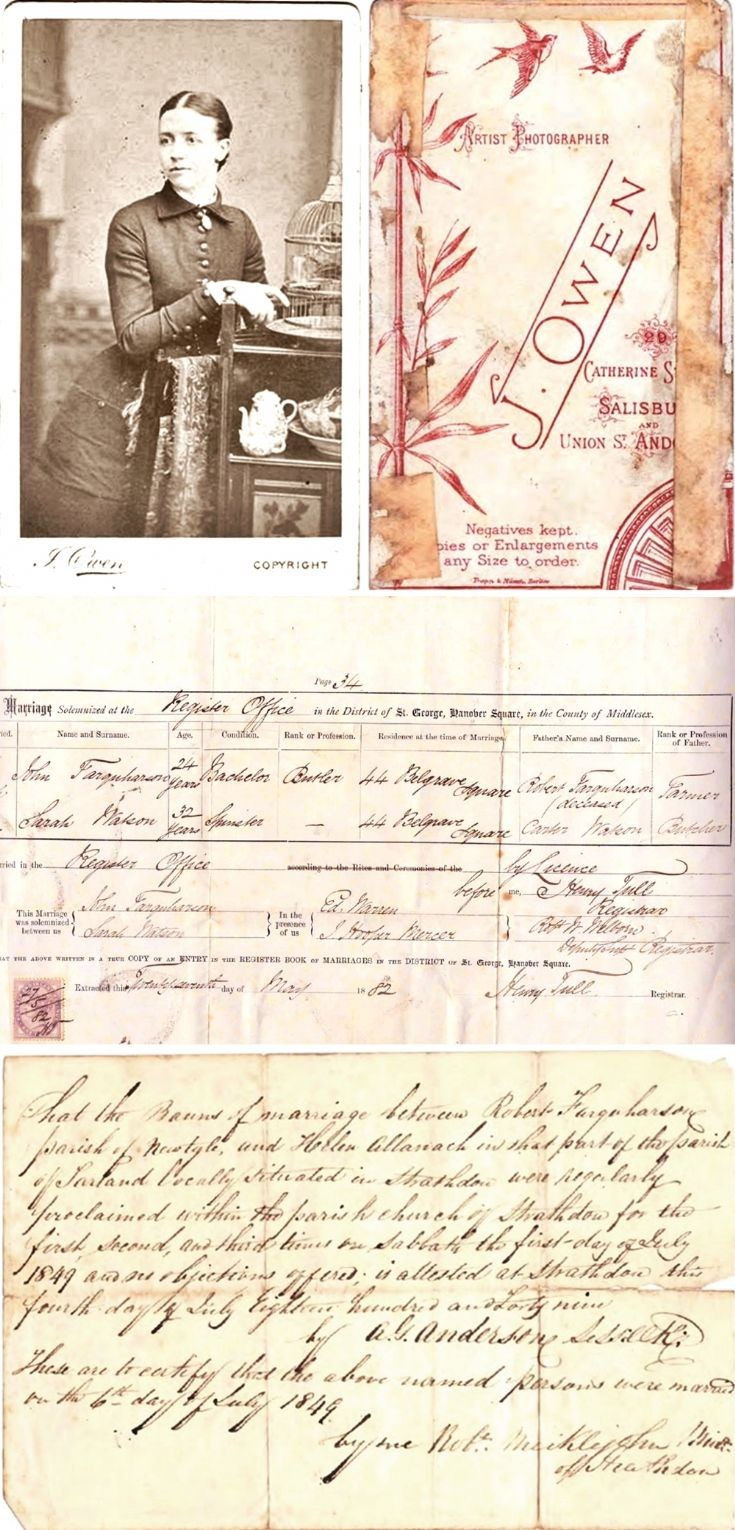 J. Owen
COPYRIGHT
ARTIST PHOTOGRAPHER
J. OWEN
29
CATHERINE S
SALISBU
AND
UNION ST. AND
Negatives kept.
pies or Enlargements
any Size to order.
Page 34
Marriage Solemnized at the Register Office in the District of St. George, Hanover Square, in the County of Middlesex.
ried. Name and Surname. Age. Condition. Rank or Profession. Residence at the time of Marriage. Father's Name and Surname. Rank or Profession of Father.
John Farquharson 24 years Bachelor Butler 44 Belgrave Square Robert Farquharson (deceased) Farmer
Sarah Watson 32 years Spinster — 44 Belgrave Square Carter Watson Butcher
rried in the Register Office according to the Rites and Ceremonies of the by Licence
before me, Henry Tull
Registrar
This Marriage was solemnized between us John Farquharson Sarah Watson In the presence of us Ed. Warren J. Hooper Mercer Robt W. Registrar.
AT THE ABOVE WRITTEN IS A TRUE COPY OF AN ENTRY IN THE REGISTER BOOK OF MARRIAGES IN THE DISTRICT OF St. George, Hanover Square.
27/5/82
Extracted this Twenty seventh day of May 1882 Henry Tull Registrar.
That the Banns of marriage between Robert Farquharson
parish of Newtyle, and Helen Allanach in that part of the parish
of Tarland locally situated in Strathdon were regularly
proclaimed within the parish church of Strathdon for the
first, second, and third times on Sabbath the first day of July
1849 and no objections offered; is attested at Strathdon this
fourth day of July Eighteen hundred and Forty nine
by A.G. Anderson
These are to certify that the above named persons were married
on the 6th day of July 1849
by me Robt. Meiklejohn Minr.
of Strathdon